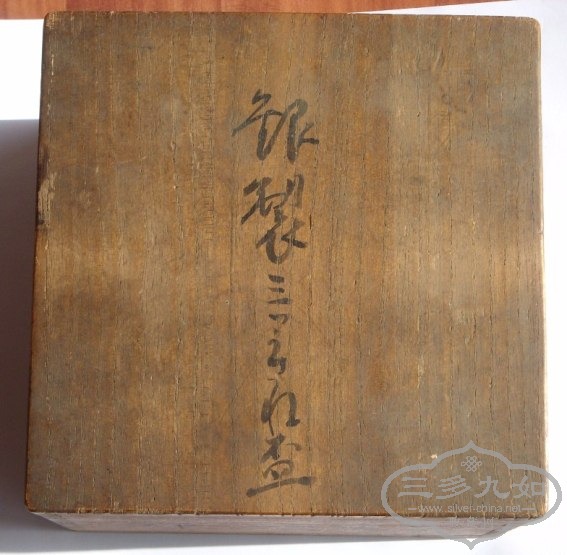 銀製三ツ重ね盃
三多九如
—www.silver-china.net—